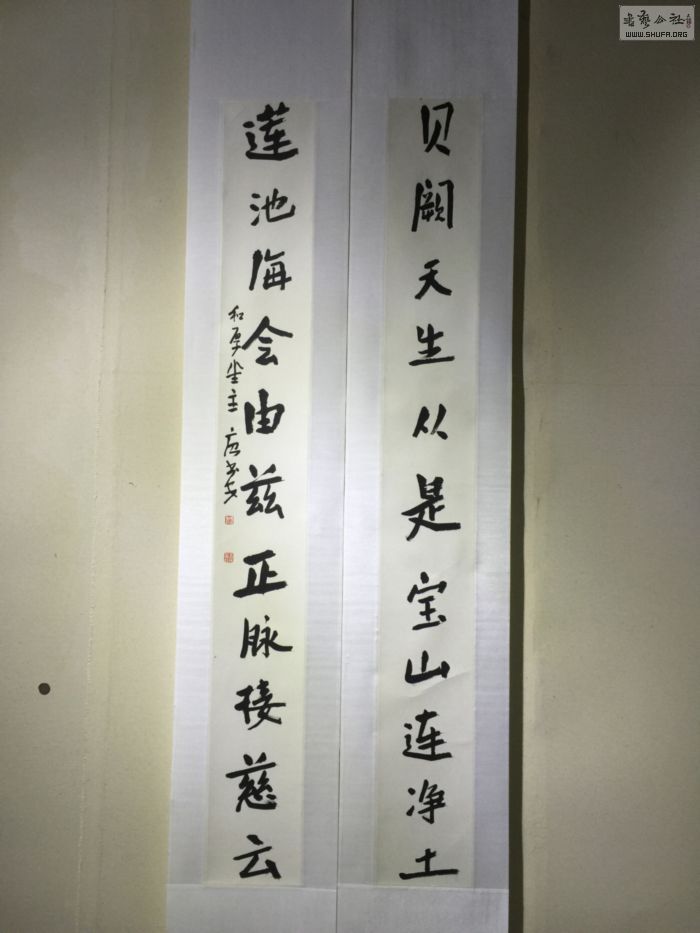 贝阙天生从是宝山连净土
莲池海会由兹正脉接慈云
和厚堂主
书艺公社
WWW.SHUFA.ORG